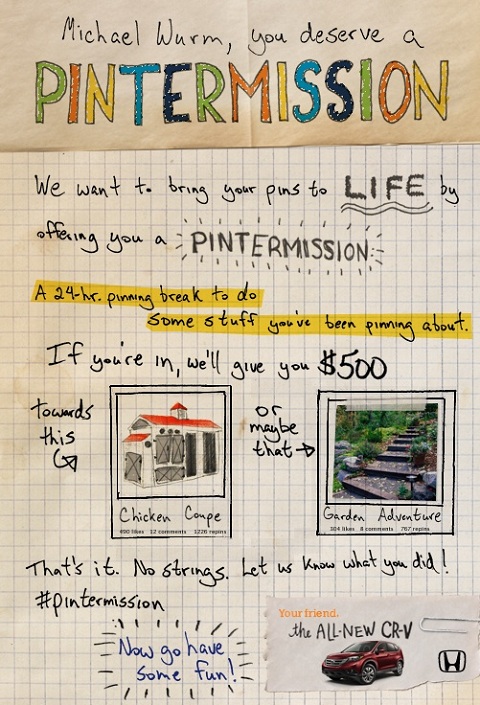 Michael Wurm, you deserve a
PINTERMISSION
We want to bring your pins to LIFE by
offering you a PINTERMISSION
A 24-hr. pinning break to do
some stuff you've been pinning about.
If you're in, we'll give you $500
towards
this
or
maybe
that
Chicken Coupe
490 likes 12 comments 1226 repins
Garden Adventure
304 likes 8 comments 767 repins
That's it. No strings. Let us know what you did!
#pintermission
Now go have
some fun!
Your friend,
the ALL-NEW CR-V